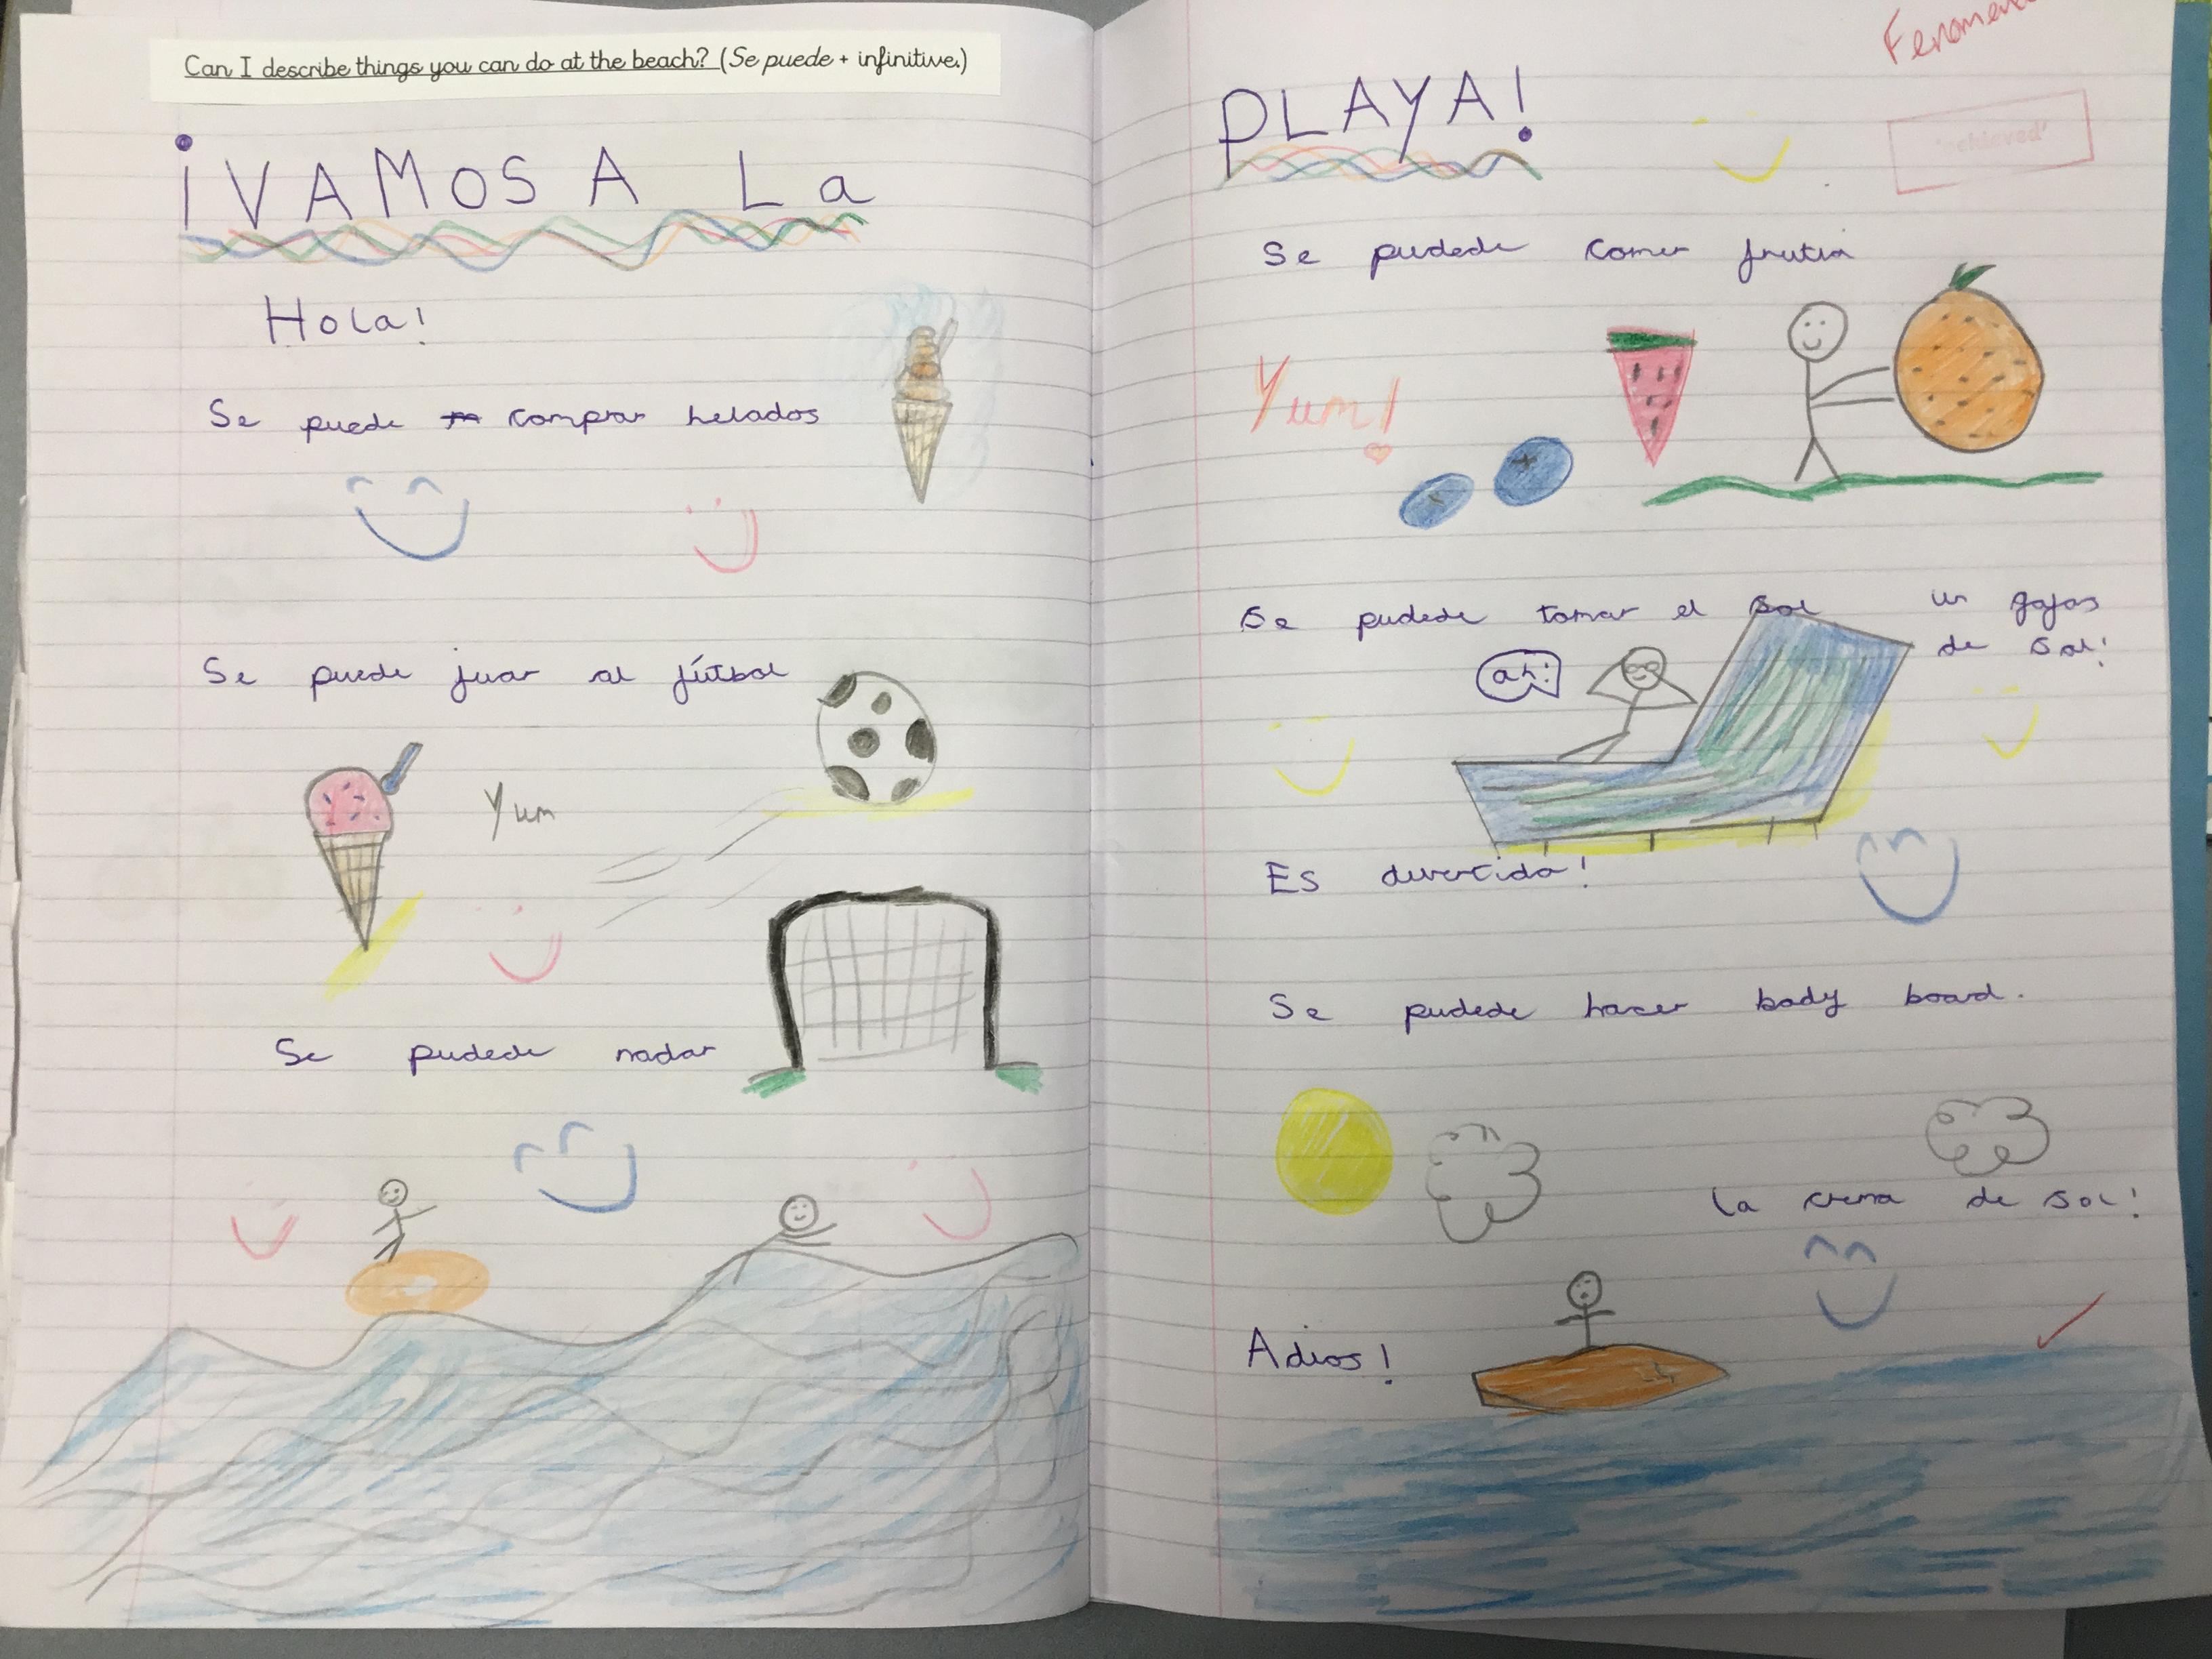 Can I describe things you can do at the beach? (Se puede + infinitive.)
¡VAMOS A La
Hola!
Se puede comprar helados
Se puede juar al fútbol
Yum
Se pudede nadar
PLAYA!
'achieved'
Se pudede comer frutia
Yum!
Se pudede tomar el sol
un gafas
de sol!
ah!
Es divertido!
Se pudede hacer body board.
la crema de sol!
Adios!